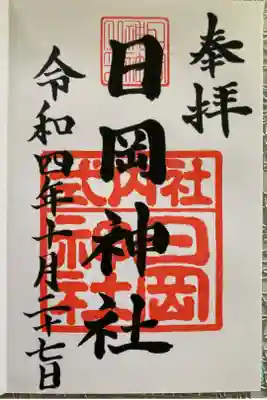 奉拝
日岡神社
式内社
日岡神社
令和四年十月二十七日